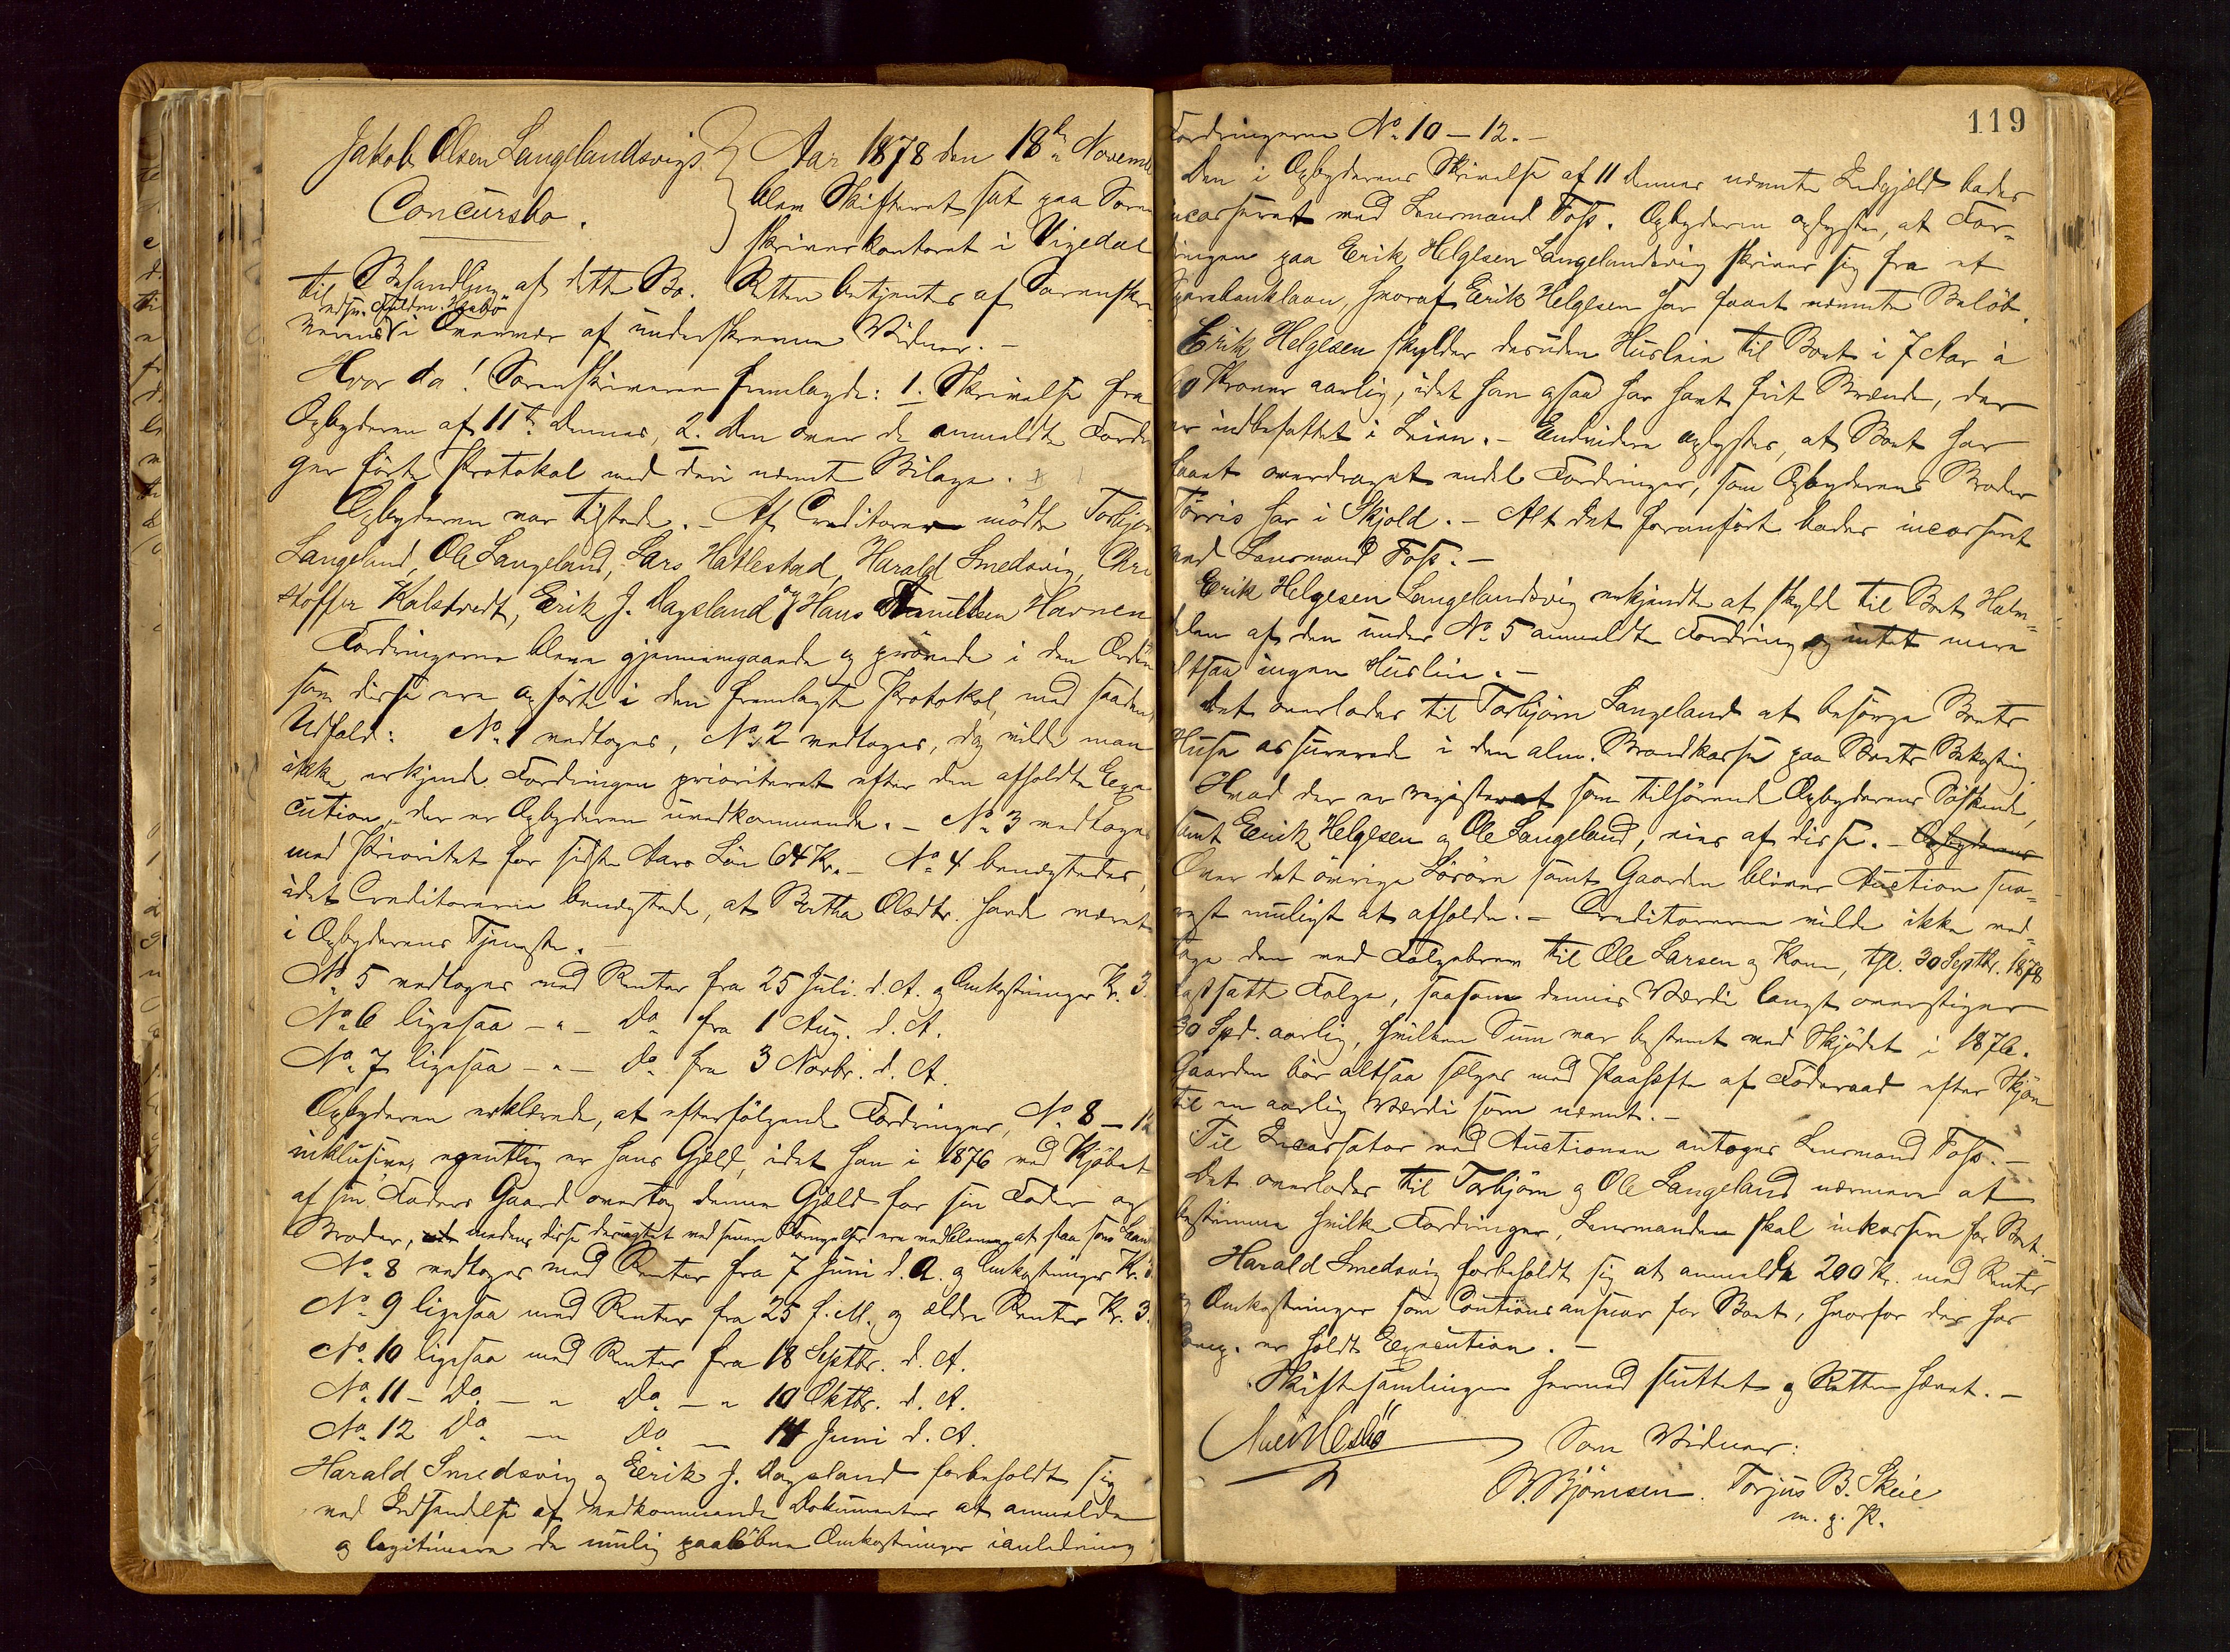 Jakob Olsen Langelandsvigs
Concursbo.
Aar 1878 den 18de Novemb
blev Skifteret sat paa Soren
skriverkontoret i Vigedal
til Behandling af dette Bo. Retten betjentes af Sorenskri
verens i Overvær af underskrevne Vidner. –
Hvor da! Sorenskriveren fremlagde: 1. Skrivelse fra
Opbyderen af 11te dennes, 2. den over de anmeldte Fordrin
ger førte Protokol med deri nævnte Bilage.
Opbyderen var tilstede. – Af Creditorer mødte Torbjørn
Langeland, Ole Langeland, Lars Hatlestad, Harald Smedsvig, Chri
stoffer Kalstvedt, Erik J. Dagsland og Hans Knudsen Havnen
Fordringerne bleve gjennemgaaede og prøvede i den Orden
som disse ere opførte i den fremlagte Protokol, med saadant
Udfald: No 1 vedtoges, No 2 vedtoges, dog vilde man
ikke erkjende Fordringen prioriteret efter den afholdte Exe
cution, der er Opbyderen uvedkommende. – No 3 vedtoges
med Prioritet for sidste Aars Løn 64 Kr. – No 4 benegtedes,
idet Creditorerne benegtede, at Bertha Olsdtr. havde været
i Opbyderens Tjeneste. –
No 5 vedtoges med Renter fra 25 Juli d. A. og Omkostninger Kr. 3.
No 6 ligesaa – " – Do fra 1 Aug. d. A.
No 7 ligesaa – " – Do fra 3 Novbr. d. A.
Opbyderen erklærede, at efterfølgende Fordringer, No 8 – 12
inklusive, egentlig er hans Gjæld, idet han i 1876 ved Kjøbet
af sin Faders Gaard overtog denne Gjæld for sin Fader og
Broder, medens disse desuagtet ved senere Fornyelser ere vedblevne at staa som
No 8 vedtoges med Renter fra 7 Juni d. A. og Omkostninger Kr.
No 9 ligesaa med Renter fra 25 f. M. og ældre Renter Kr. 3.
No 10 ligesaa med Renter fra 18 Septbr. d. A.
No 11 – Do – " Do – " 10 Oktbr. d. A.
No 12 Do – " Do – 14 Juni d. A.
Harald Smedsvig og Erik J. Dagsland forbeholdt sig
ved Indsendelse af vedkommende Dokumenter at anmelde
og legitimere de mulig paaløbne Omkostninger ianledning
119
Fordringerne No 10 – 12. –
Den i Opbyderens Skrivelse af 11 dennes nævnte Indgjæld bades
incasseret ved Lensmand Foss. Opbyderen oplyste, at For-
dringen paa Erik Helgesen Langelandsvig skriver sig fra et
Sparebanklaan, hvoraf Erik Helgesen har faaet nævnte Beløb.
Erik Helgesen skylder desuden Husleie til Boet i 7 Aar à
60 Kroner aarlig, idet han ogsaa har havt frit Brænde, der
er indbefattet i Leien. – Endvidere oplystes, at Boet har
faaet overdraget endel Fordringer, som Opbyderens Broder
Tørris har i Skjold. – Alt det foranførte bades incasseret
ved Lensmand Foss. –
Erik Helgesen Langelandsvig erkjendte at skylde til Boet Halv-
delen af den under No 5 anmeldte Fordring og intet mere
altsaa ingen Husleie. –
Det overlodes til Torbjørn Langeland at besørge Boets
Huse assurerede i den alm. Brandkasse paa Boets Bekostning.
Hvad der er registeret som tilhørende Opbyderens Søskende,
samt Erik Helgesen og Ole Langeland, eies af disse. – Opbyderens
Over det øvrige Løsøre samt Gaarden bliver Auction sna-
rest muligt at afholde. – Creditorerne vilde ikke ved-
tage den ved Folgebrev til Ole Larsen og Kone, tgl. 30 Septbr. 1878
fastsatte Folge, saasom dennes Værdi langt overstiger
30 Spd. aarlig, hvilken Sum var bestemt ved Skjødet i 1876.
Gaarden bør altsaa sælges med Paahæfte af Føderaad efter Skjøn
til en aarlig Værdi som nævnt. –
Til Incassator ved Auctionen antoges Lensmand Foss. –
Det overlodes til Torbjørn og Ole Langeland nærmere at
bestemme hvilke Fordringer, Lensmanden skal inkassere for Boet. –
Harald Smedsvig forbeholdt sig at anmelde 200 Kr. med Renter
og Omkostninger som Cautionsansvar for Boet, hvorfor der hos
er holdt Execution. –
Skiftesamlingen hermed sluttet og Retten hævet. –
Som Vidner:
B. Bjørnsen. Torjus B. Skeie
m. p. P.